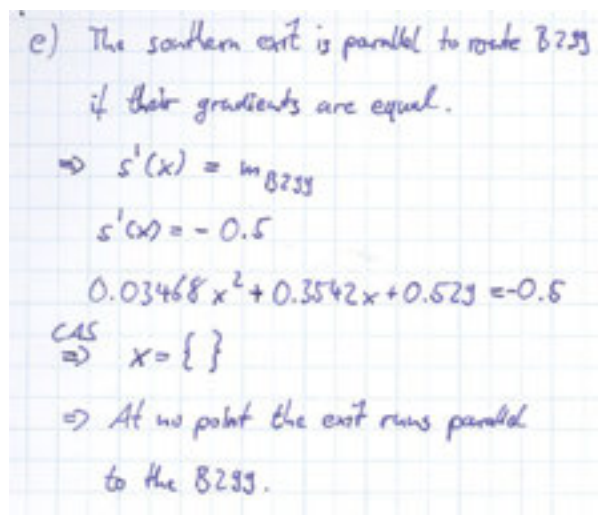 e) The southern exit is parallel to route B299
if their gradients are equal.
⇒ s'(x) = m B299
s'(x) = - 0.5
0.03468 x² + 0.3542x + 0.529 = -0.5
CAS
⇒ x = { }
⇒ At no point the exit runs parallel
to the B299.